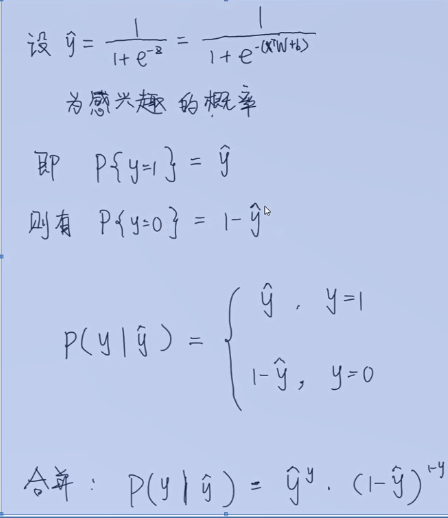 设 ŷ = 1/(1+e^{-z}) = 1/(1+e^{-(x^T W+b)})
为感兴趣的概率
即 P{y=1} = ŷ
则有 P{y=0} = 1-ŷ
P(y|ŷ) = { ŷ, y=1
1-ŷ, y=0
合并: P(y|ŷ) = ŷ^y · (1-ŷ)^{1-y}